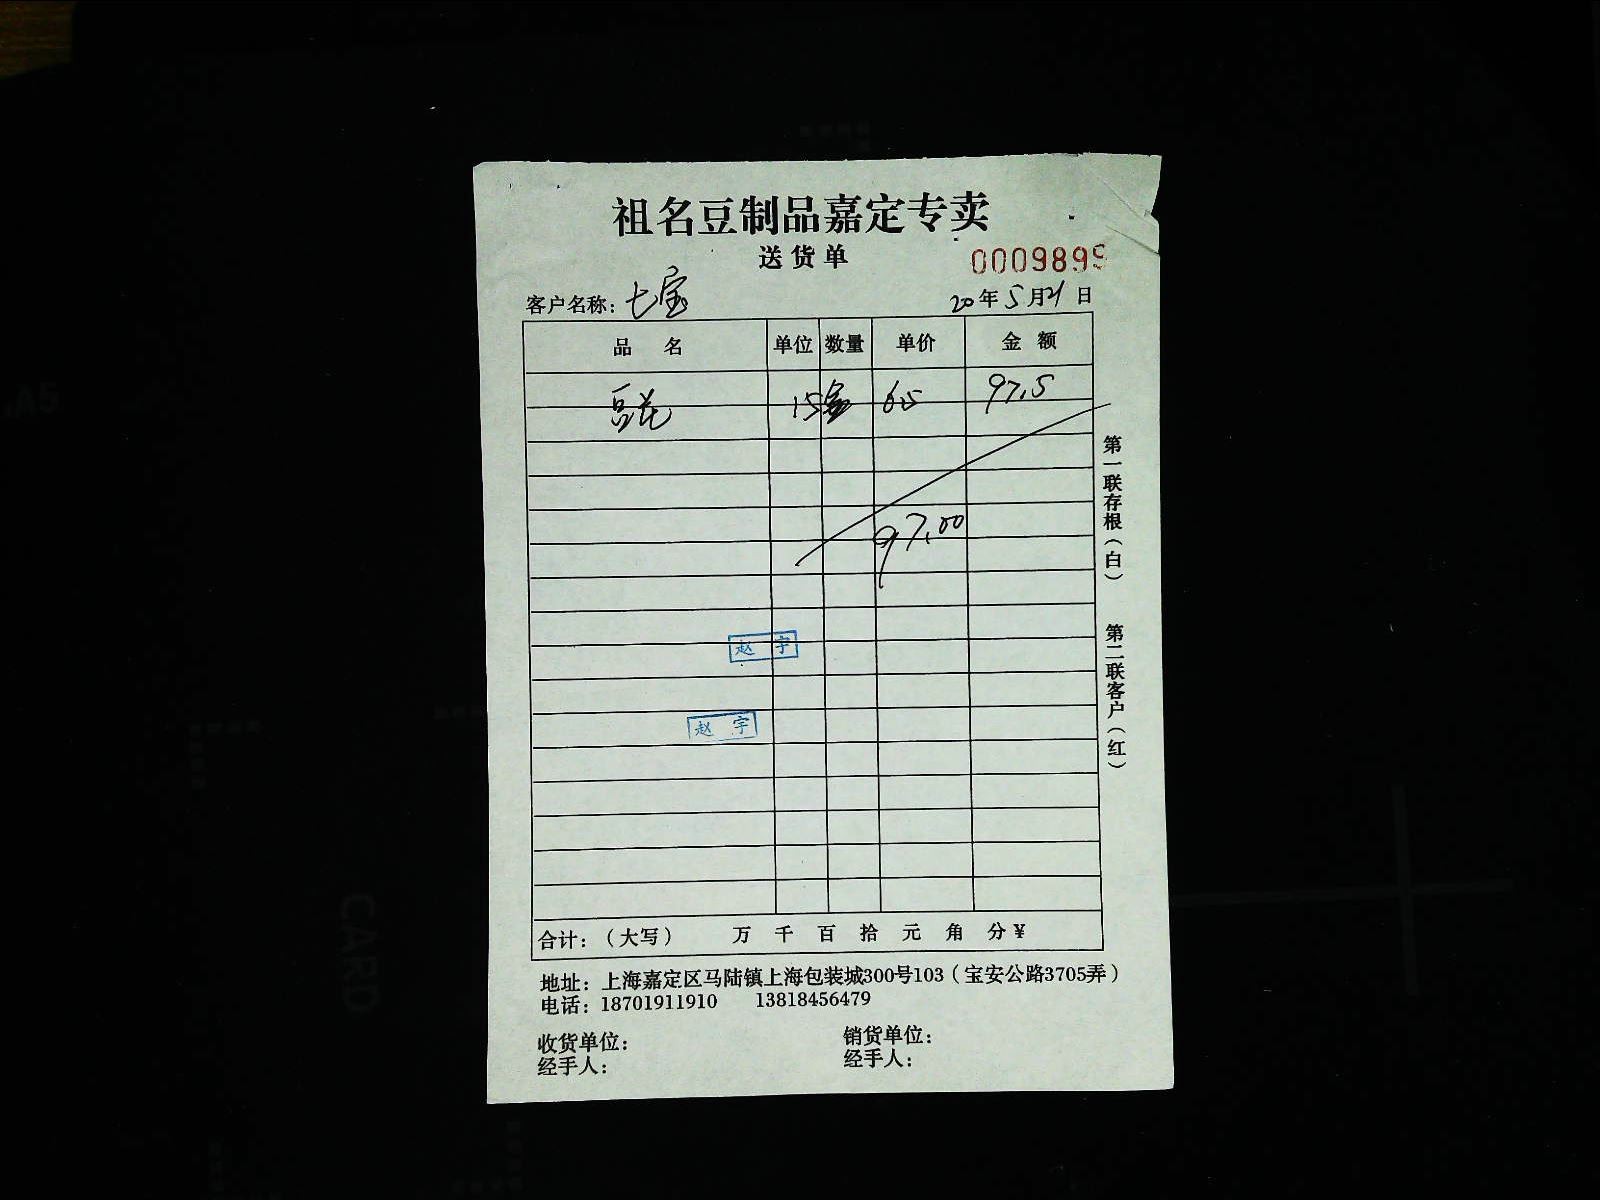 祖名豆制品嘉定专卖
送货单
0009899
客户名称：七宝 20年5月21日
品 名 单位 数量 单价 金 额
豆花 15盒 6.5 97.5
97.00
赵 宇
赵 宇
合计：（大写） 万 千 百 拾 元 角 分￥
地址：上海嘉定区马陆镇上海包装城300号103（宝安公路3705弄）
电话：18701911910 13818456479
收货单位： 销货单位：
经手人： 经手人：
第一联存根（白） 第二联客户（红）